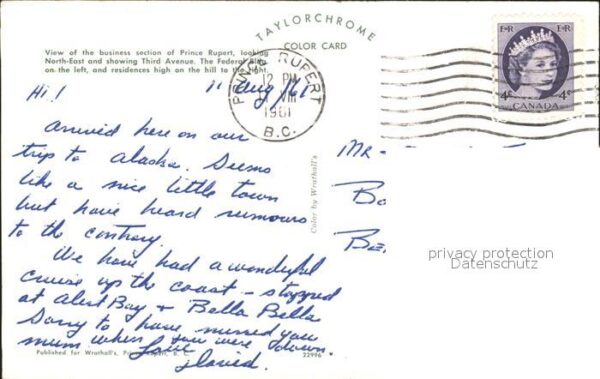 TAYLORCHROME
COLOR CARD
View of the business section of Prince Rupert, looking
North-East and showing Third Avenue. The Federal Bldg.
on the left, and residences high on the hill to the right.
PRINCE RUPERT
12 PM
VIII
1961
B.C.
E II R E II R
4¢ 4¢
CANADA
11 Aug/61
Hi!
Arrived here on our
trip to Alaska. Seems
like a nice little town
but have heard rumours
to the contrary.
We have had a wonderful
cruise up the coast - stopped
at Alert Bay & Bella Bella
Sorry to have missed you
mum when you were down.
Love
Mr -
Bo
Be
Color by Wrathall's
privacy protection
Datenschutz
Published for Wrathall's, Prince Rupert, B. C.
22996